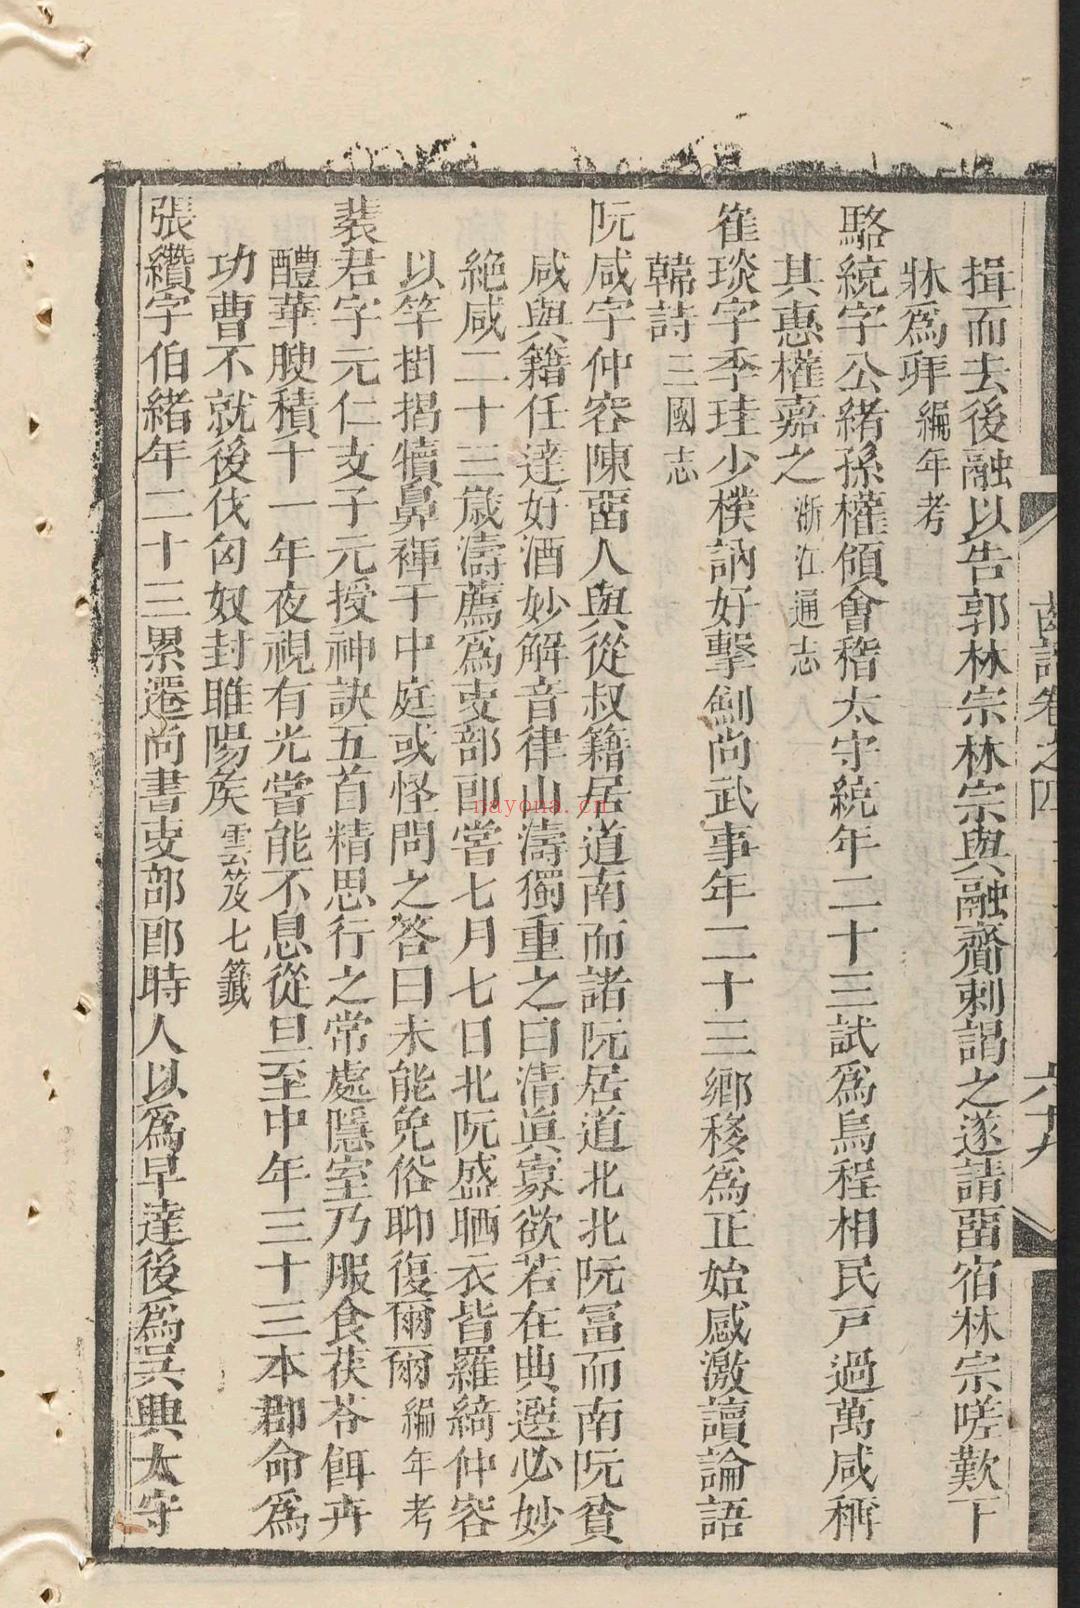 揖而去後融以告郭林宗林宗與融齎刺謁之遂請畱宿林宗嗟歎下
牀爲拜編年考
駱統字公緒孫權領會稽太守統年二十三試爲烏程相民戸過萬咸稱
其惠權嘉之浙江通志
崔琰字季珪少樸訥好擊劍尚武事年二十三鄉移爲正始感激讀論語
韓詩三國志
阮咸字仲容陳畱人與從叔籍居道南而諸阮居道北北阮富而南阮貧
咸與籍任達好酒妙解音律山濤獨重之曰清眞寡欲若在典選必妙
絶咸二十三歲濤薦爲吏部郎當七月七日北阮盛晒衣皆羅綺仲容
以竿掛揭犢鼻褌于中庭或怪問之答曰未能免俗聊復爾爾編年考
裴君字元仁支子元授神訣五首精思行之常處隱室乃服食茯苓餌卉
醴華腴積十一年夜視有光當能不息從旦至中年三十三本郡命爲
功曹不就後伐匈奴封睢陽矦雲笈七籤
張纘字伯緒年二十三累遷尚書吏部郎時人以爲早達後爲吳興太守
齒譜卷之四
六十九
nayona.cn